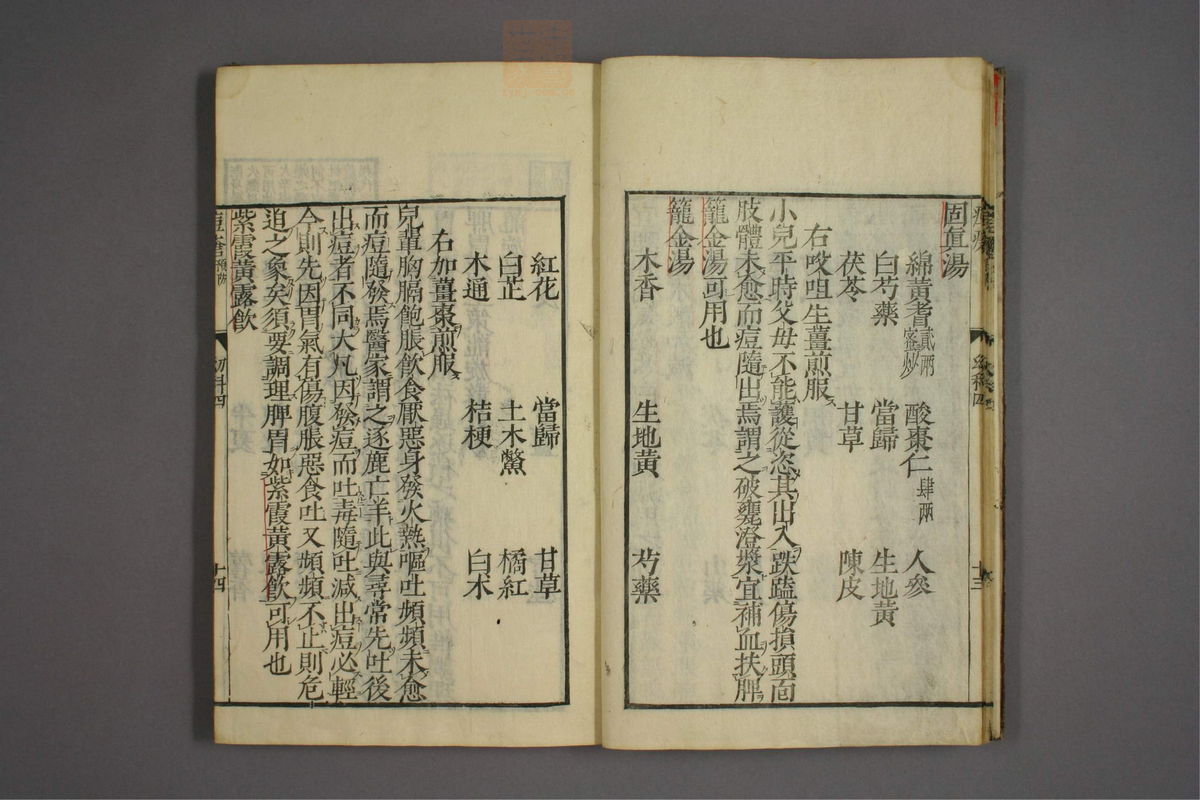 固真湯
綿黃耆貳兩蜜炒 酸棗仁肆兩 人參
白芍藥 當歸 生地黃
茯苓 甘草 陳皮
右㕮咀生薑煎服
小兒平時父母不能護從恣其出入跌磕傷損頭面
肢體未愈而痘隨出焉謂之破甕澄漿宜補血扶脾
籠金湯可用也
籠金湯
木香 生地黃 芍藥
紅花 當歸 甘草
白芷 土木鱉 橘紅
木通 桔梗 白朮
右加薑棗煎服
兒輩胸膈飽脹飲食厭惡身發火熱嘔吐頻頻未愈
而痘隨發焉醫家謂之逐鹿亡羊此與尋常先吐後
出痘者不同大凡因發痘而吐毒隨吐減出痘必輕
今則先因胃氣有傷腹脹惡食吐又頻頻不止則危
迫之象矣須要調理脾胃如紫霞黃露飲可用也
紫霞黃露飲
幼科四
十四